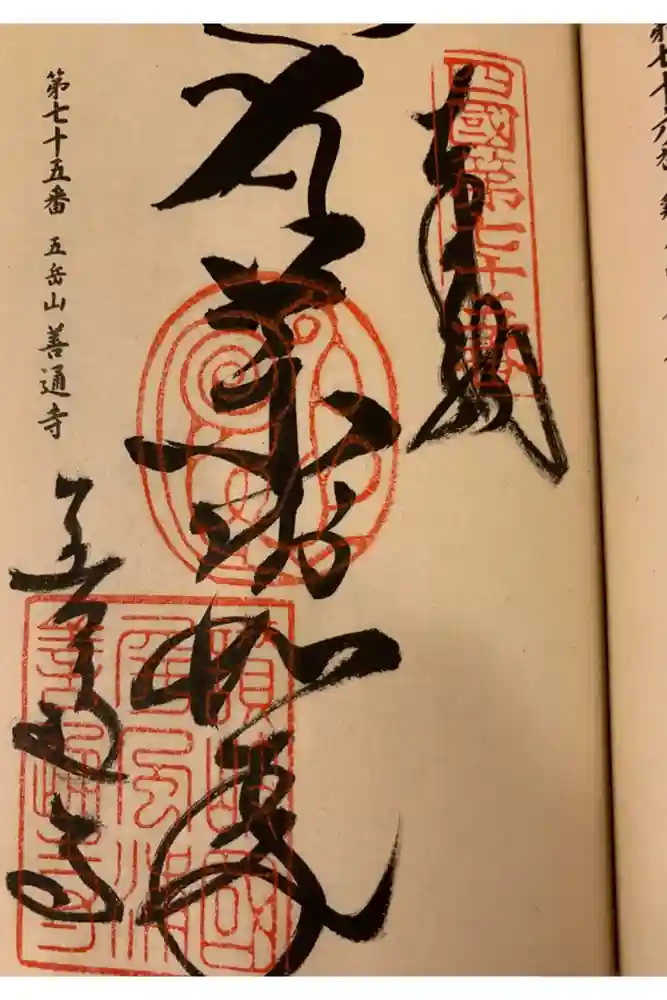 奉納
四國第七十五番
薬師如来
善通寺
第七十五番 五岳山 善通寺